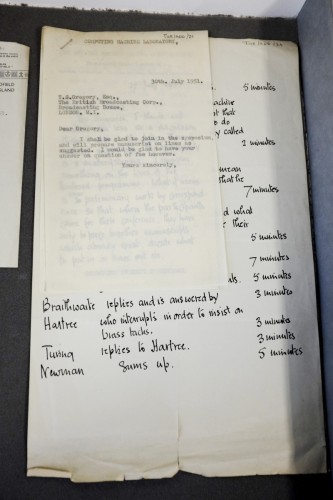 COMPUTING MACHINE LABORATORY,
30th. July 1951.
T.S.Gregory, Esq.,
The British Broadcasting Corp.,
Broadcasting House,
LONDON, W.1.
Dear Gregory,
I shall be glad to join in the
and will prepare manuscript on lines as
suggested. I would be glad to have your
answer on question of fee however.
Yours sincerely,
5 minutes
achine
that
to do
y called
2 minutes
that he
7 minutes
d what
their
5 minutes
7 minutes
5 minutes
Braithwaite replies and is answered by 3 minutes
Hartree who interrupts in order to insist on
brass tacks. 3 minutes
Turing replies to Hartree. 3 minutes
Newman Sums up. 5 minutes